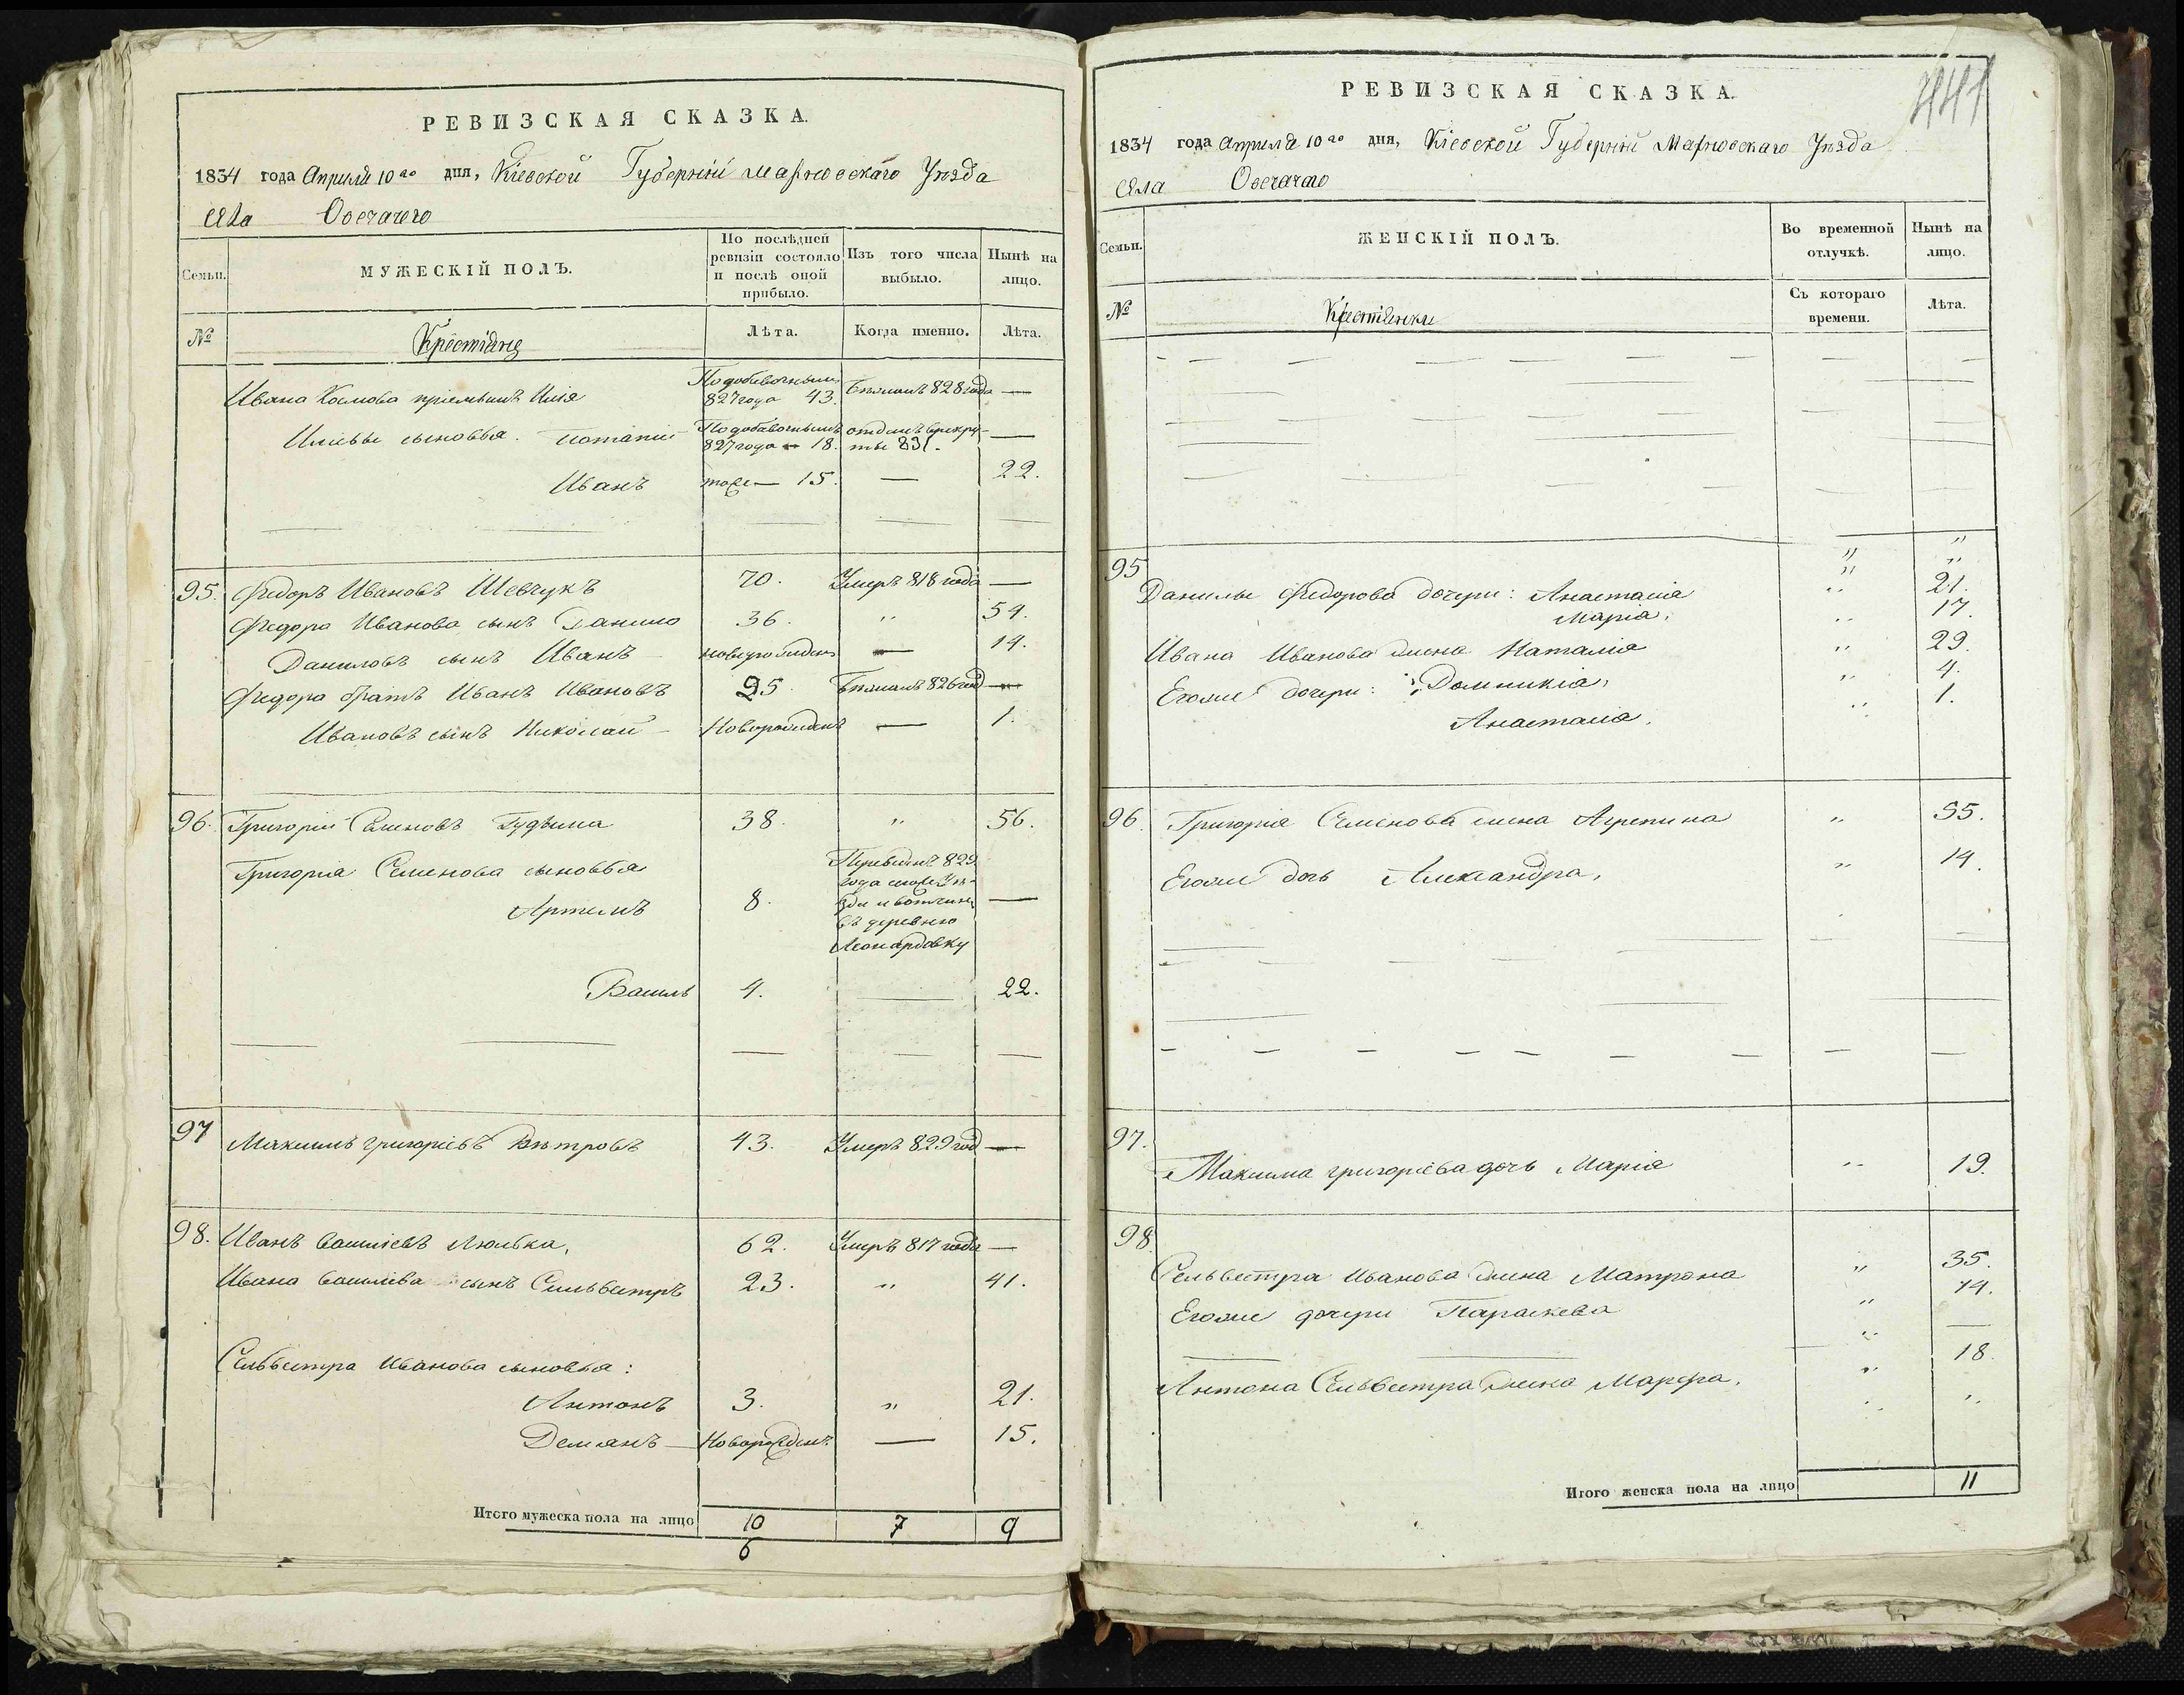 РЕВИЗСКАЯ СКАЗКА.
1834 года Апреля 10го дня, Кіевской Губерніи Махновскаго Уѣзда
села Овсчачего
Семьи.
МУЖЕСКІЙ ПОЛЪ.
По послѣдней
ревизіи состояло
и послѣ оной
прибыло.
Изъ того числа
выбыло.
Нынѣ на
лицо.
№
Крестіяне
Лѣта.
Когда именно.
Лѣта.
Ивана Космова пріемышъ Илія
По добавочнымъ
827 года 43.
Бежалъ 828 года —
Иліевы сыновья.
По добавочнымъ
827 года — 18.
отданъ в рекру-
ты 831.
—
Иванъ
тоже — 15.
—
22.
95. Федоръ Ивановъ Шевчукъ 70. Умеръ 818 года —
Федора Иванова сынъ Данило 36. „ 54.
Даниловъ сынъ Иванъ новорожденъ — 14.
Федора братъ Иванъ Ивановъ 25. Бежалъ 826 год —
Ивановъ сынъ Николай — Новорожденъ — 1.
96. Григорій Семеновъ Гудзына 38. „ 56.
Григорія Семенова сыновья
Артемъ
8.
Переведенъ 829
года того Уѣ-
зда и вотчины
въ деревню
Леонардовку
—
Василь 4. — 22.
97 Максимъ Григоріевъ Вѣтровъ 43. Умеръ 829 год —
98. Иванъ Василіевъ Люлька, 62. Умеръ 817 года —
Ивана Василіева сынъ Сильвестръ 23. „ 41.
Сельвестра Иванова сыновья:
Антонъ 3. „ 21.
Демянъ — Новорожденъ — 15.
Итого мужеска пола на лицо 10 7 9
6
441
РЕВИЗСКАЯ СКАЗКА.
1834 года Апреля 10го дня, Кіевской Губерніи Махновскаго Уѣзда
села Овсчачего
Семьи.
ЖЕНСКІЙ ПОЛЪ.
Во временной
отлучкѣ.
Нынѣ на
лицо.
№
Крестіянки
Съ котораго
времени.
Лѣта.
95
Данилы Федорова дочери: Анастасія „ 21.
Марія, „ 17.
Ивана Иванова жена Наталія „ 29.
Егоже дочери: Домникія, „ 4.
Анастасія, „ 1.
96. Григорія Семенова жена Агрепина „ 55.
Егоже дочь Александра, „ 14.
97.
Максима Григоріева дочь Марія „ 19.
98.
Сельвестра Иванова жена Матрона „ 35.
Егоже дочери Параскева „ 14.
—
Антона Сельвестра жена Марфа, „ 18.
Итого женска пола на лицо 11